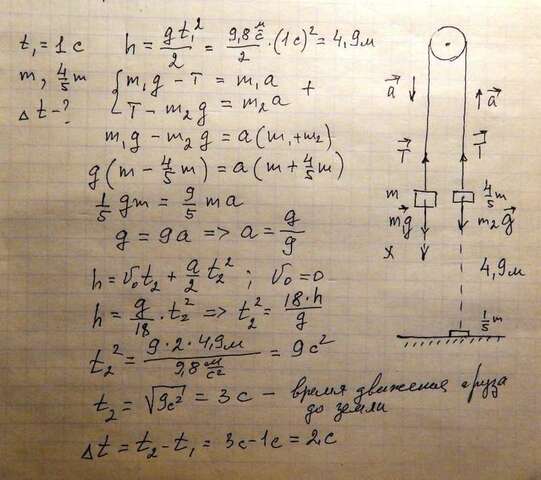 t₁ = 1 с h = gt₁²/2 = 9,8 м/с²/2 · (1 с)² = 4,9 м
m, 4/5 m { m₁g - T = m₁a +
Δt - ? T - m₂g = m₂a
m₁g - m₂g = a(m₁ + m₂)
g(m - 4/5 m) = a(m + 4/5 m)
1/5 gm = 9/5 ma
g = 9a => a = g/9
h = v₀t₂ + a/2 t₂² ; v₀ = 0
h = g/18 · t₂² => t₂² = 18·h/g
t₂² = 9·2·4,9м / 9,8 м/с² = 9 с²
t₂ = √9с² = 3 с - время движения груза
до земли
Δt = t₂ - t₁ = 3с - 1с = 2с
a⃗ a⃗
T⃗ T⃗
m 4/5 m
m₁g⃗ m₂g⃗
x 4,9м
1/5 m